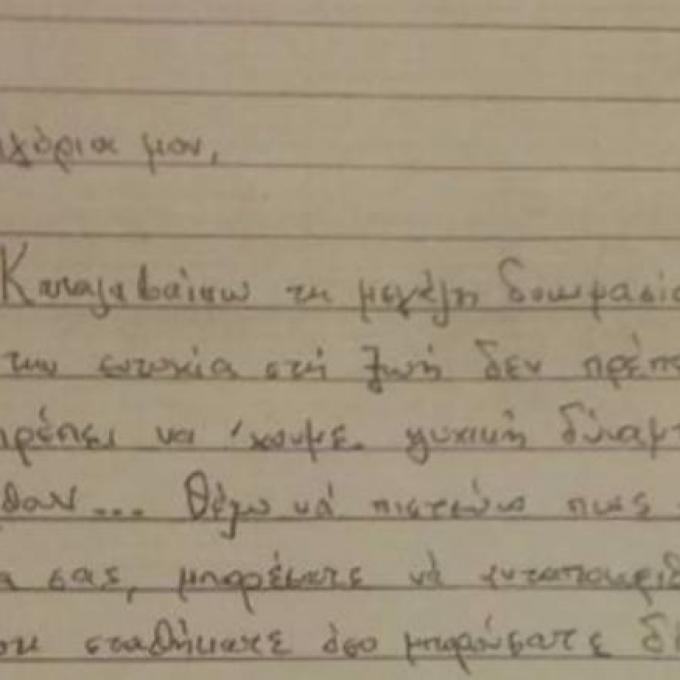 γόρια μου,
Καταλαβαίνω τη μεγάλη δοκιμασία
την ευτυχία στή ζωή δεν πρέπε
πρέπει να 'χουμε ψυχική δύναμ
θαν... Θέλω νά πιστεύω πως
α σας, μπορέσατε νά ανταποκριθ
σταθήκατε όσο μπορούσατε δ